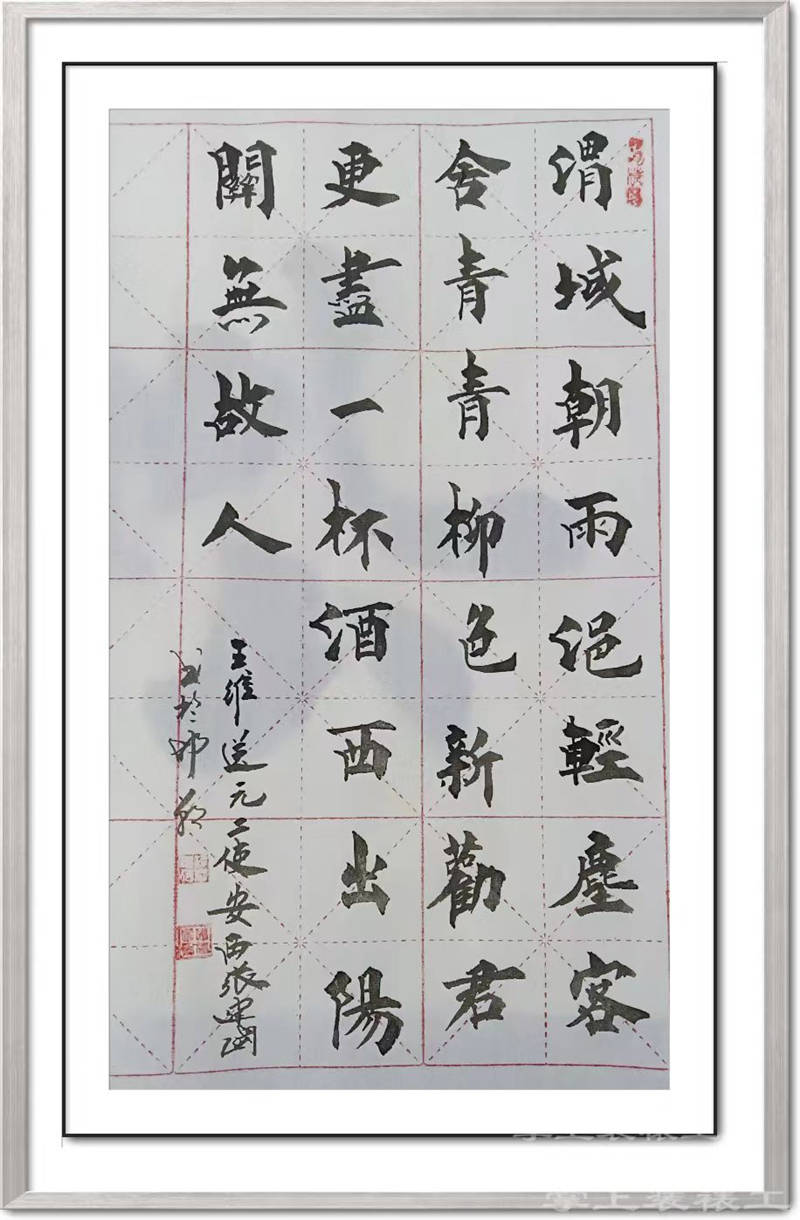 渭城朝雨浥輕塵客
舍青青柳色新勸君
更盡一杯酒西出陽
關無故人
王維送元二使安西張建國
書於
掌上装裱工